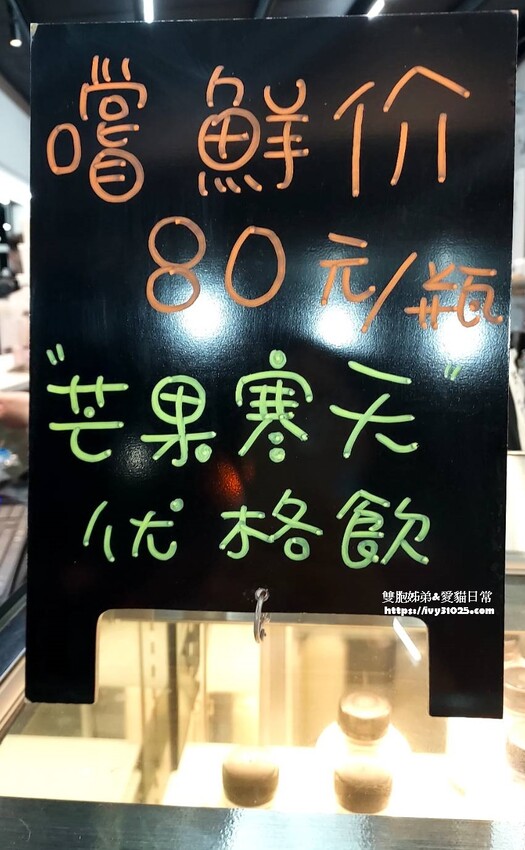 嚐鮮价
80元/瓶
"芒果寒天"
优格飲
雙胞姊弟&愛貓日常
https://ivy31025.com